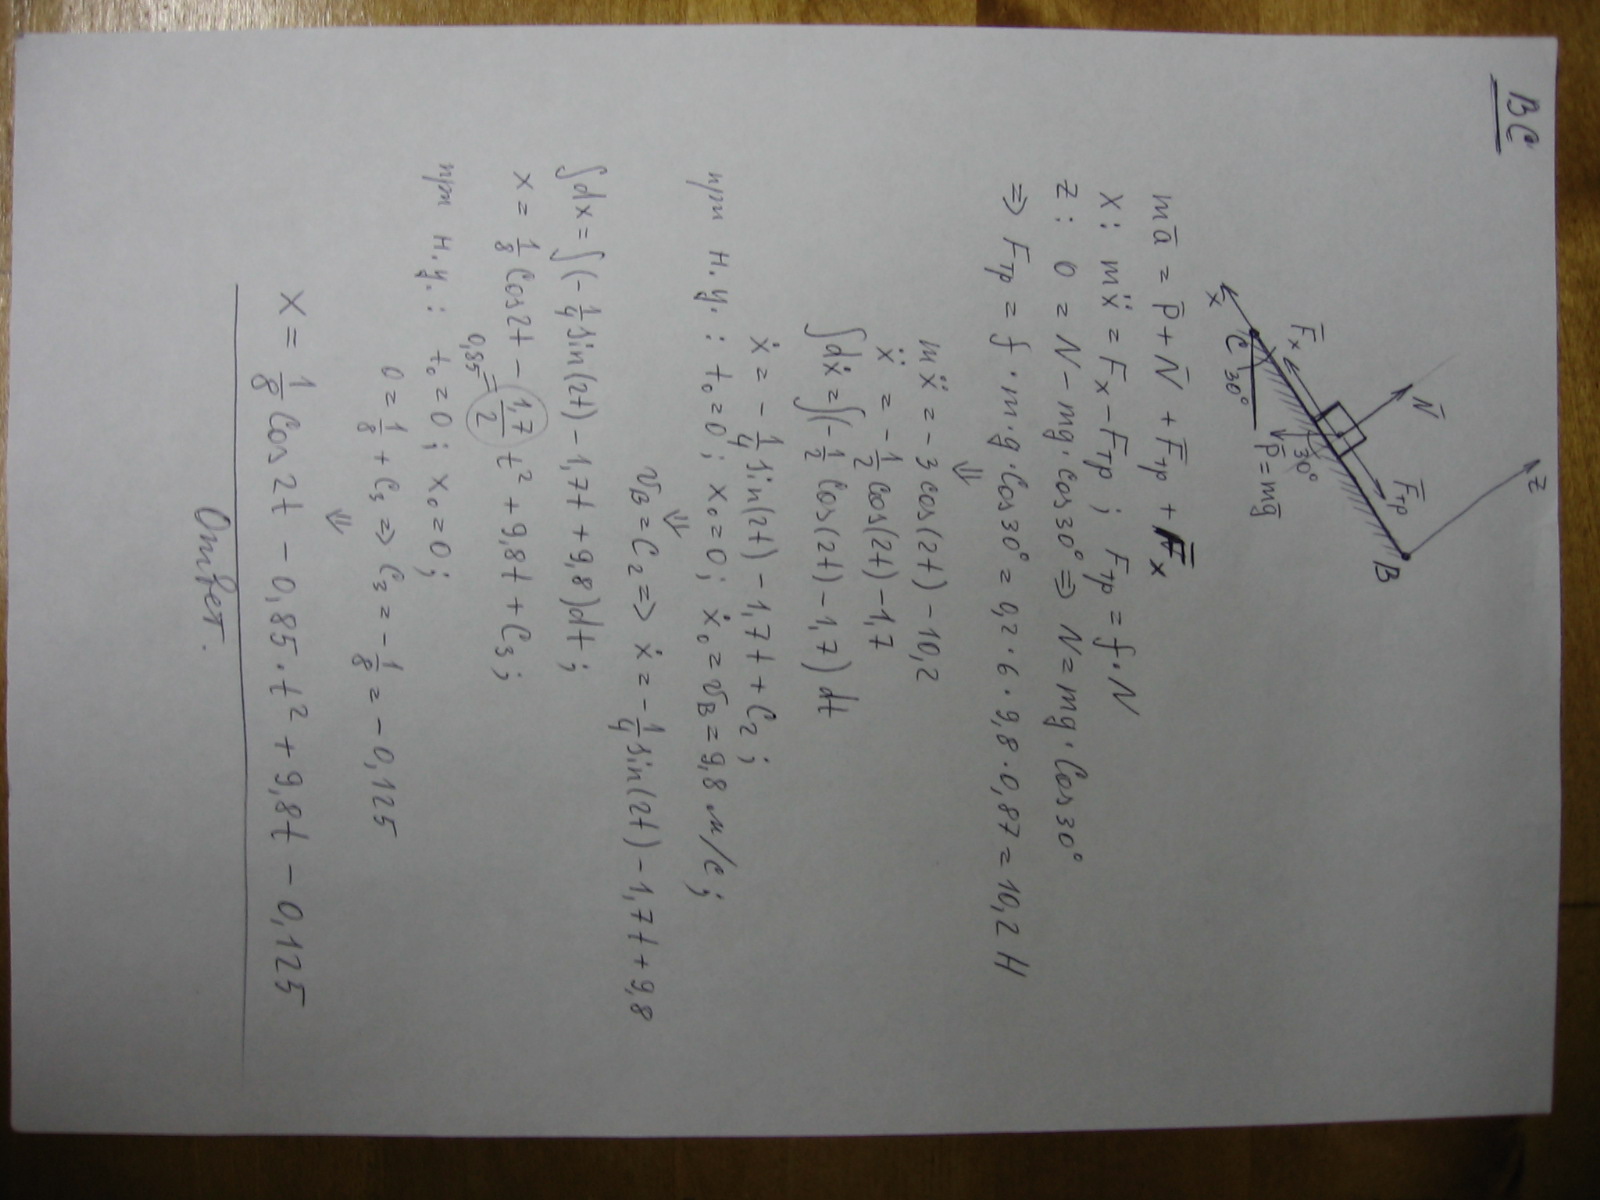 BC
z
N̄
F̄тр
B
F̄x
30°
C
30°
P̄=mḡ
x
mā = P̄ + N̄ + F̄тр + F̄x
X: mẍ = Fx - Fтр ; Fтр = f·N
Z: 0 = N - mg·cos30° ⇒ N = mg·Cos30°
⇒ Fтр = f·m·g·Cos30° = 0,2·6·9,8·0,87 = 10,2 Н
⇓
mẍ = -3cos(2t) - 10,2
ẍ = -1/2 cos(2t) - 1,7
∫dẋ = ∫(-1/2 Cos(2t) - 1,7)dt
ẋ = -1/4 sin(2t) - 1,7t + C₂ ;
при н.у.: t₀=0; x₀=0; ẋ₀=𝒱B = 9,8 м/с;
⇓
𝒱B = C₂ ⇒ ẋ = -1/4 sin(2t) - 1,7t + 9,8
∫dx = ∫(-1/4 sin(2t) - 1,7t + 9,8)dt ;
x = 1/8 Cos2t - 1,7/2 t² + 9,8t + C₃ ;
0,85 =
при н.у.: t₀=0; x₀=0;
0 = 1/8 + C₃ ⇒ C₃ = -1/8 = -0,125
⇓
X = 1/8 Cos2t - 0,85·t² + 9,8t - 0,125
Ответ.